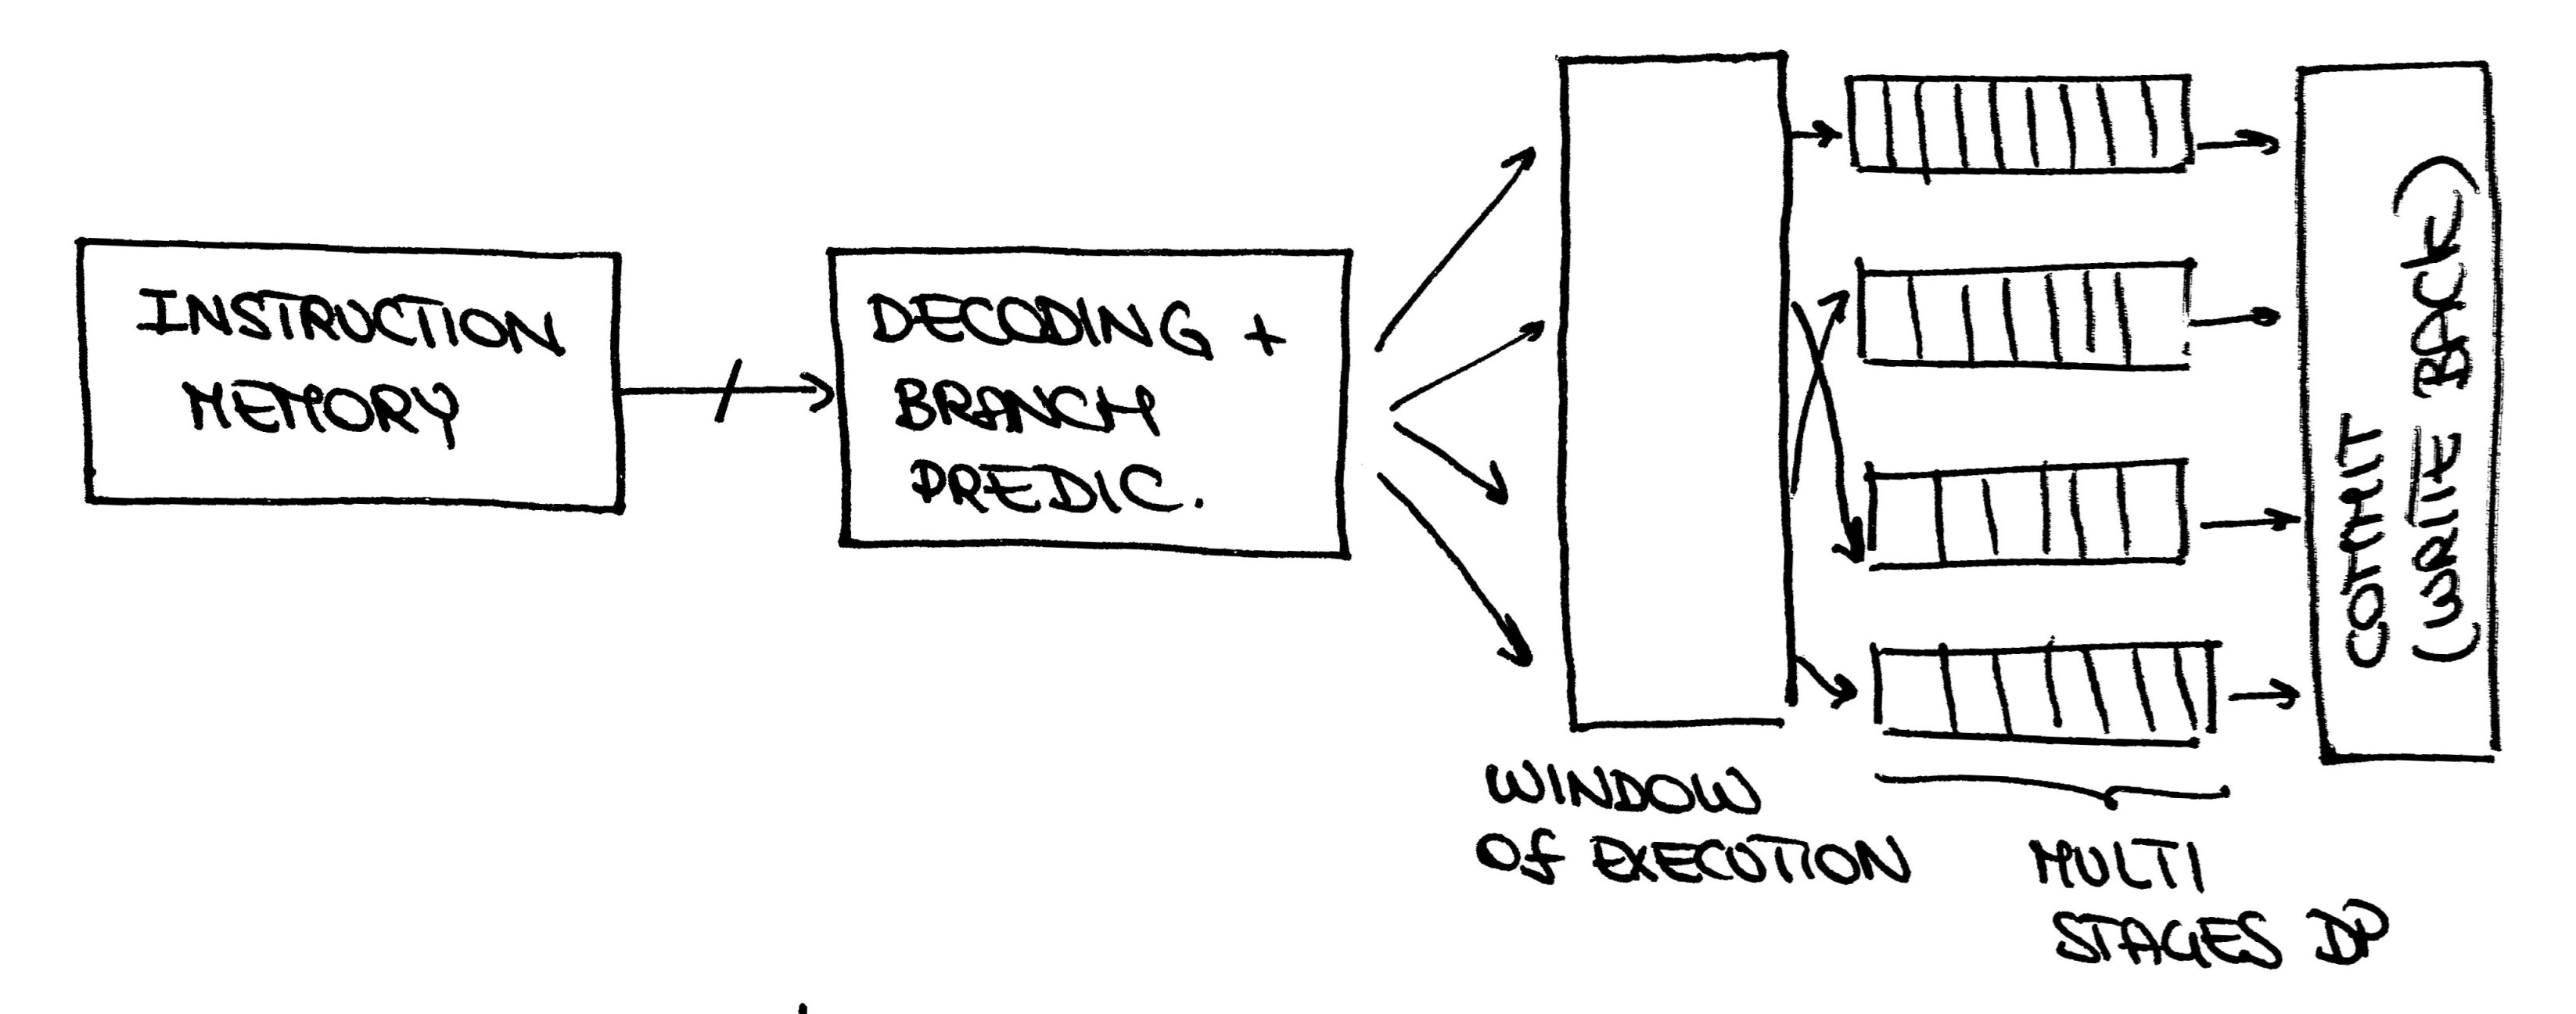 INSTRUCTION
MEMORY
DECODING +
BRANCH
PREDIC.
WINDOW
Of EXECUTION
MULTI
STAGES DP
COMMIT
(WRITE BACK)